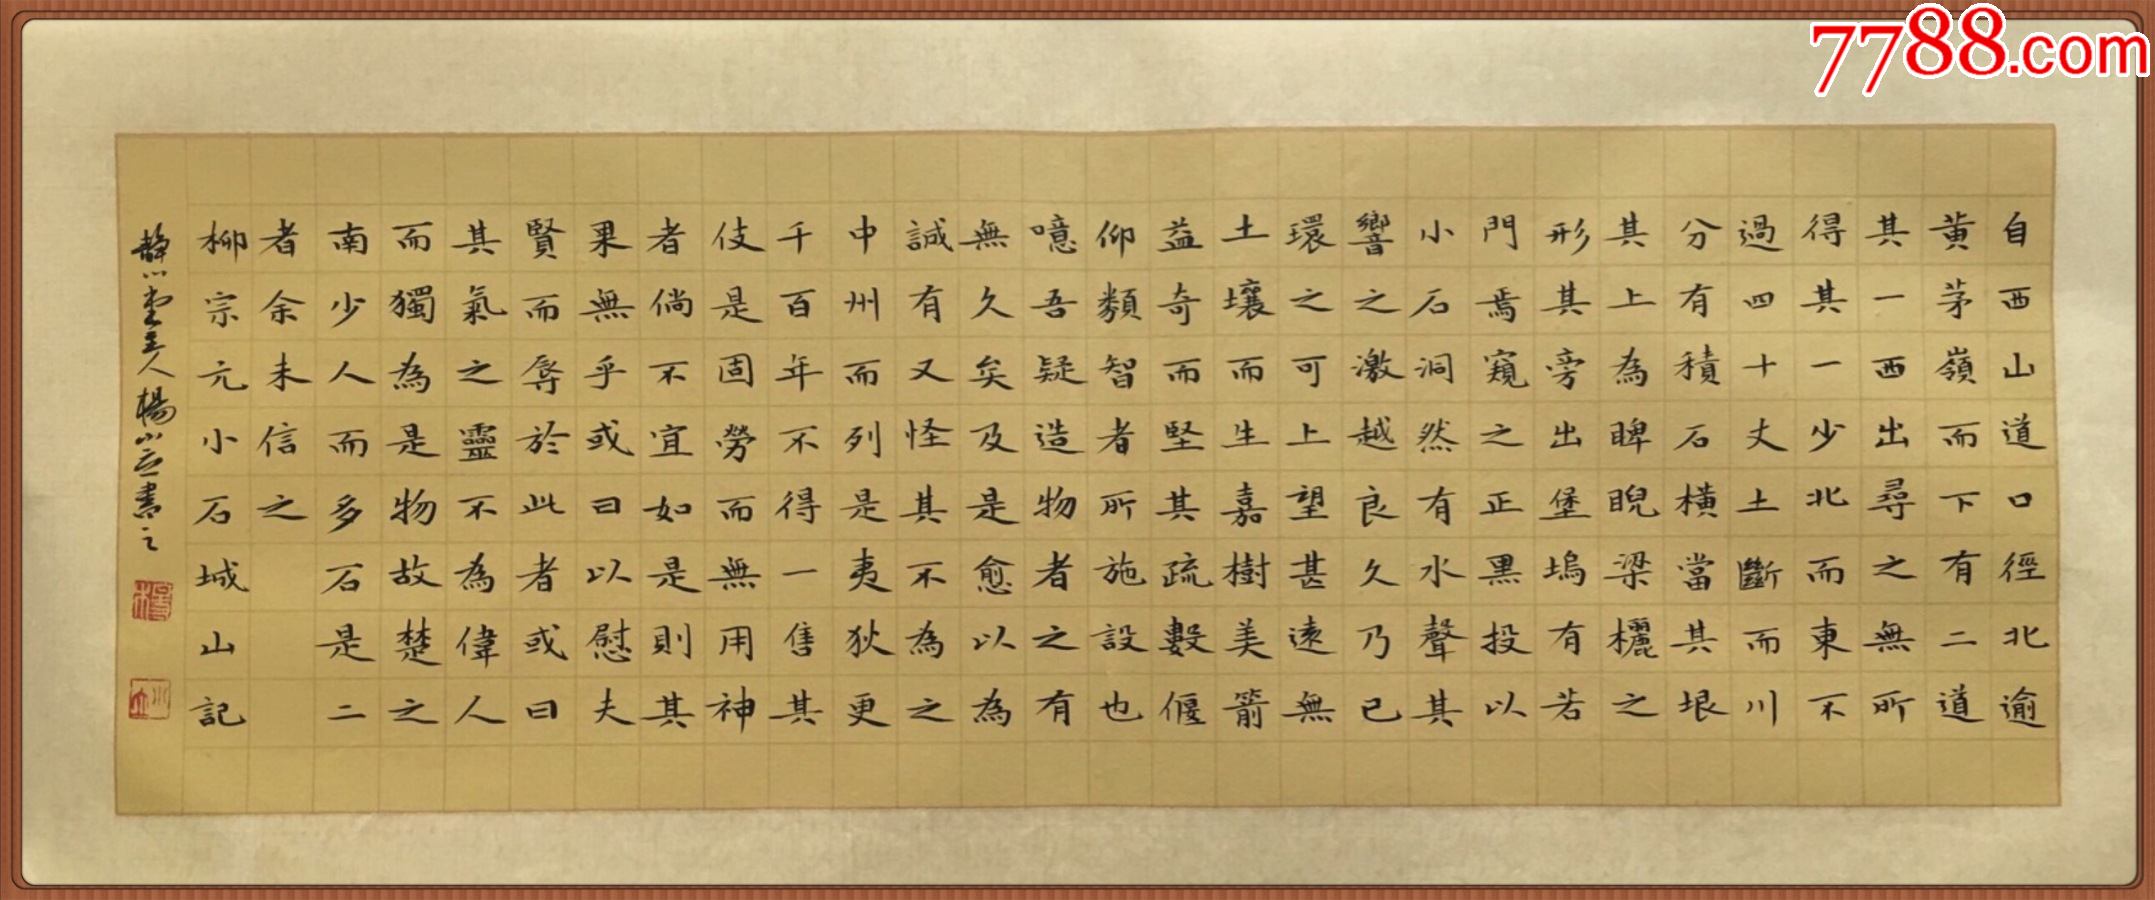 自西山道口徑北逾
黄茅嶺而下有二道
其一西出尋之無所
得其一少北而東不
過四十丈土斷而川
分有積石橫當其垠
其上為睥睨梁欐之
形其旁出堡塢有若
門焉窺之正黑投以
小石洞然有水聲其
響之激越良久乃已
環之可上望甚遠無
土壤而生嘉樹美箭
益奇而堅其疏數偃
仰類智者所施設也
噫吾疑造物者之有
無久矣及是愈以為
誠有又怪其不為之
中州而列是夷狄更
千百年不得一售其
伎是固勞而無用神
者倘不宜如是則其
果無乎或曰以慰夫
賢而辱於此者或曰
其氣之靈不為偉人
而獨為是物故楚之
南少人而多石是二
者余未信之
柳宗元小石城山記
主人楊小立書之
7788.com